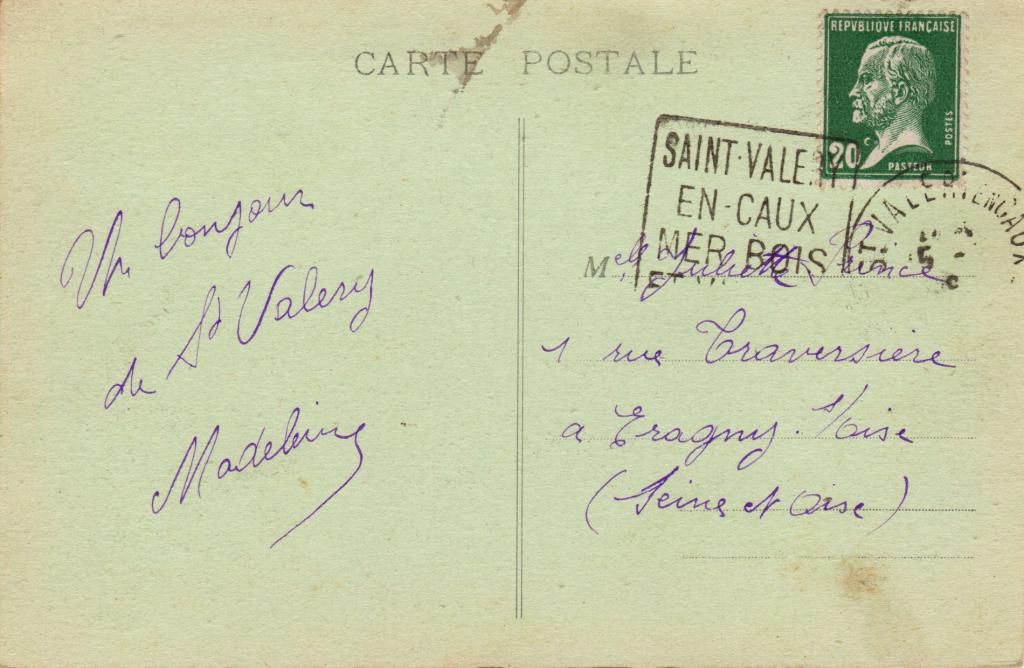 CARTE POSTALE
REPVBLIQVE FRANÇAISE
POSTES
20 c
PASTEUR
SAINT-VALERY
EN-CAUX
MER BOIS
ST VALERY EN CAUX
Un bonjour
de St Valery
Madeleine
Melle Juliette Prince
1 rue Traversière
à Eragny s/oise
(Seine et Oise)